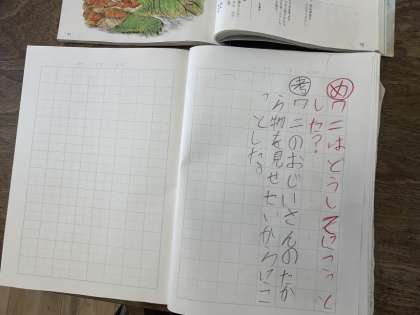 め ワニはどうしてにこっと
した?
考 ワニのおじいさんのたか
ら物を見せたいからにこ
っとした。